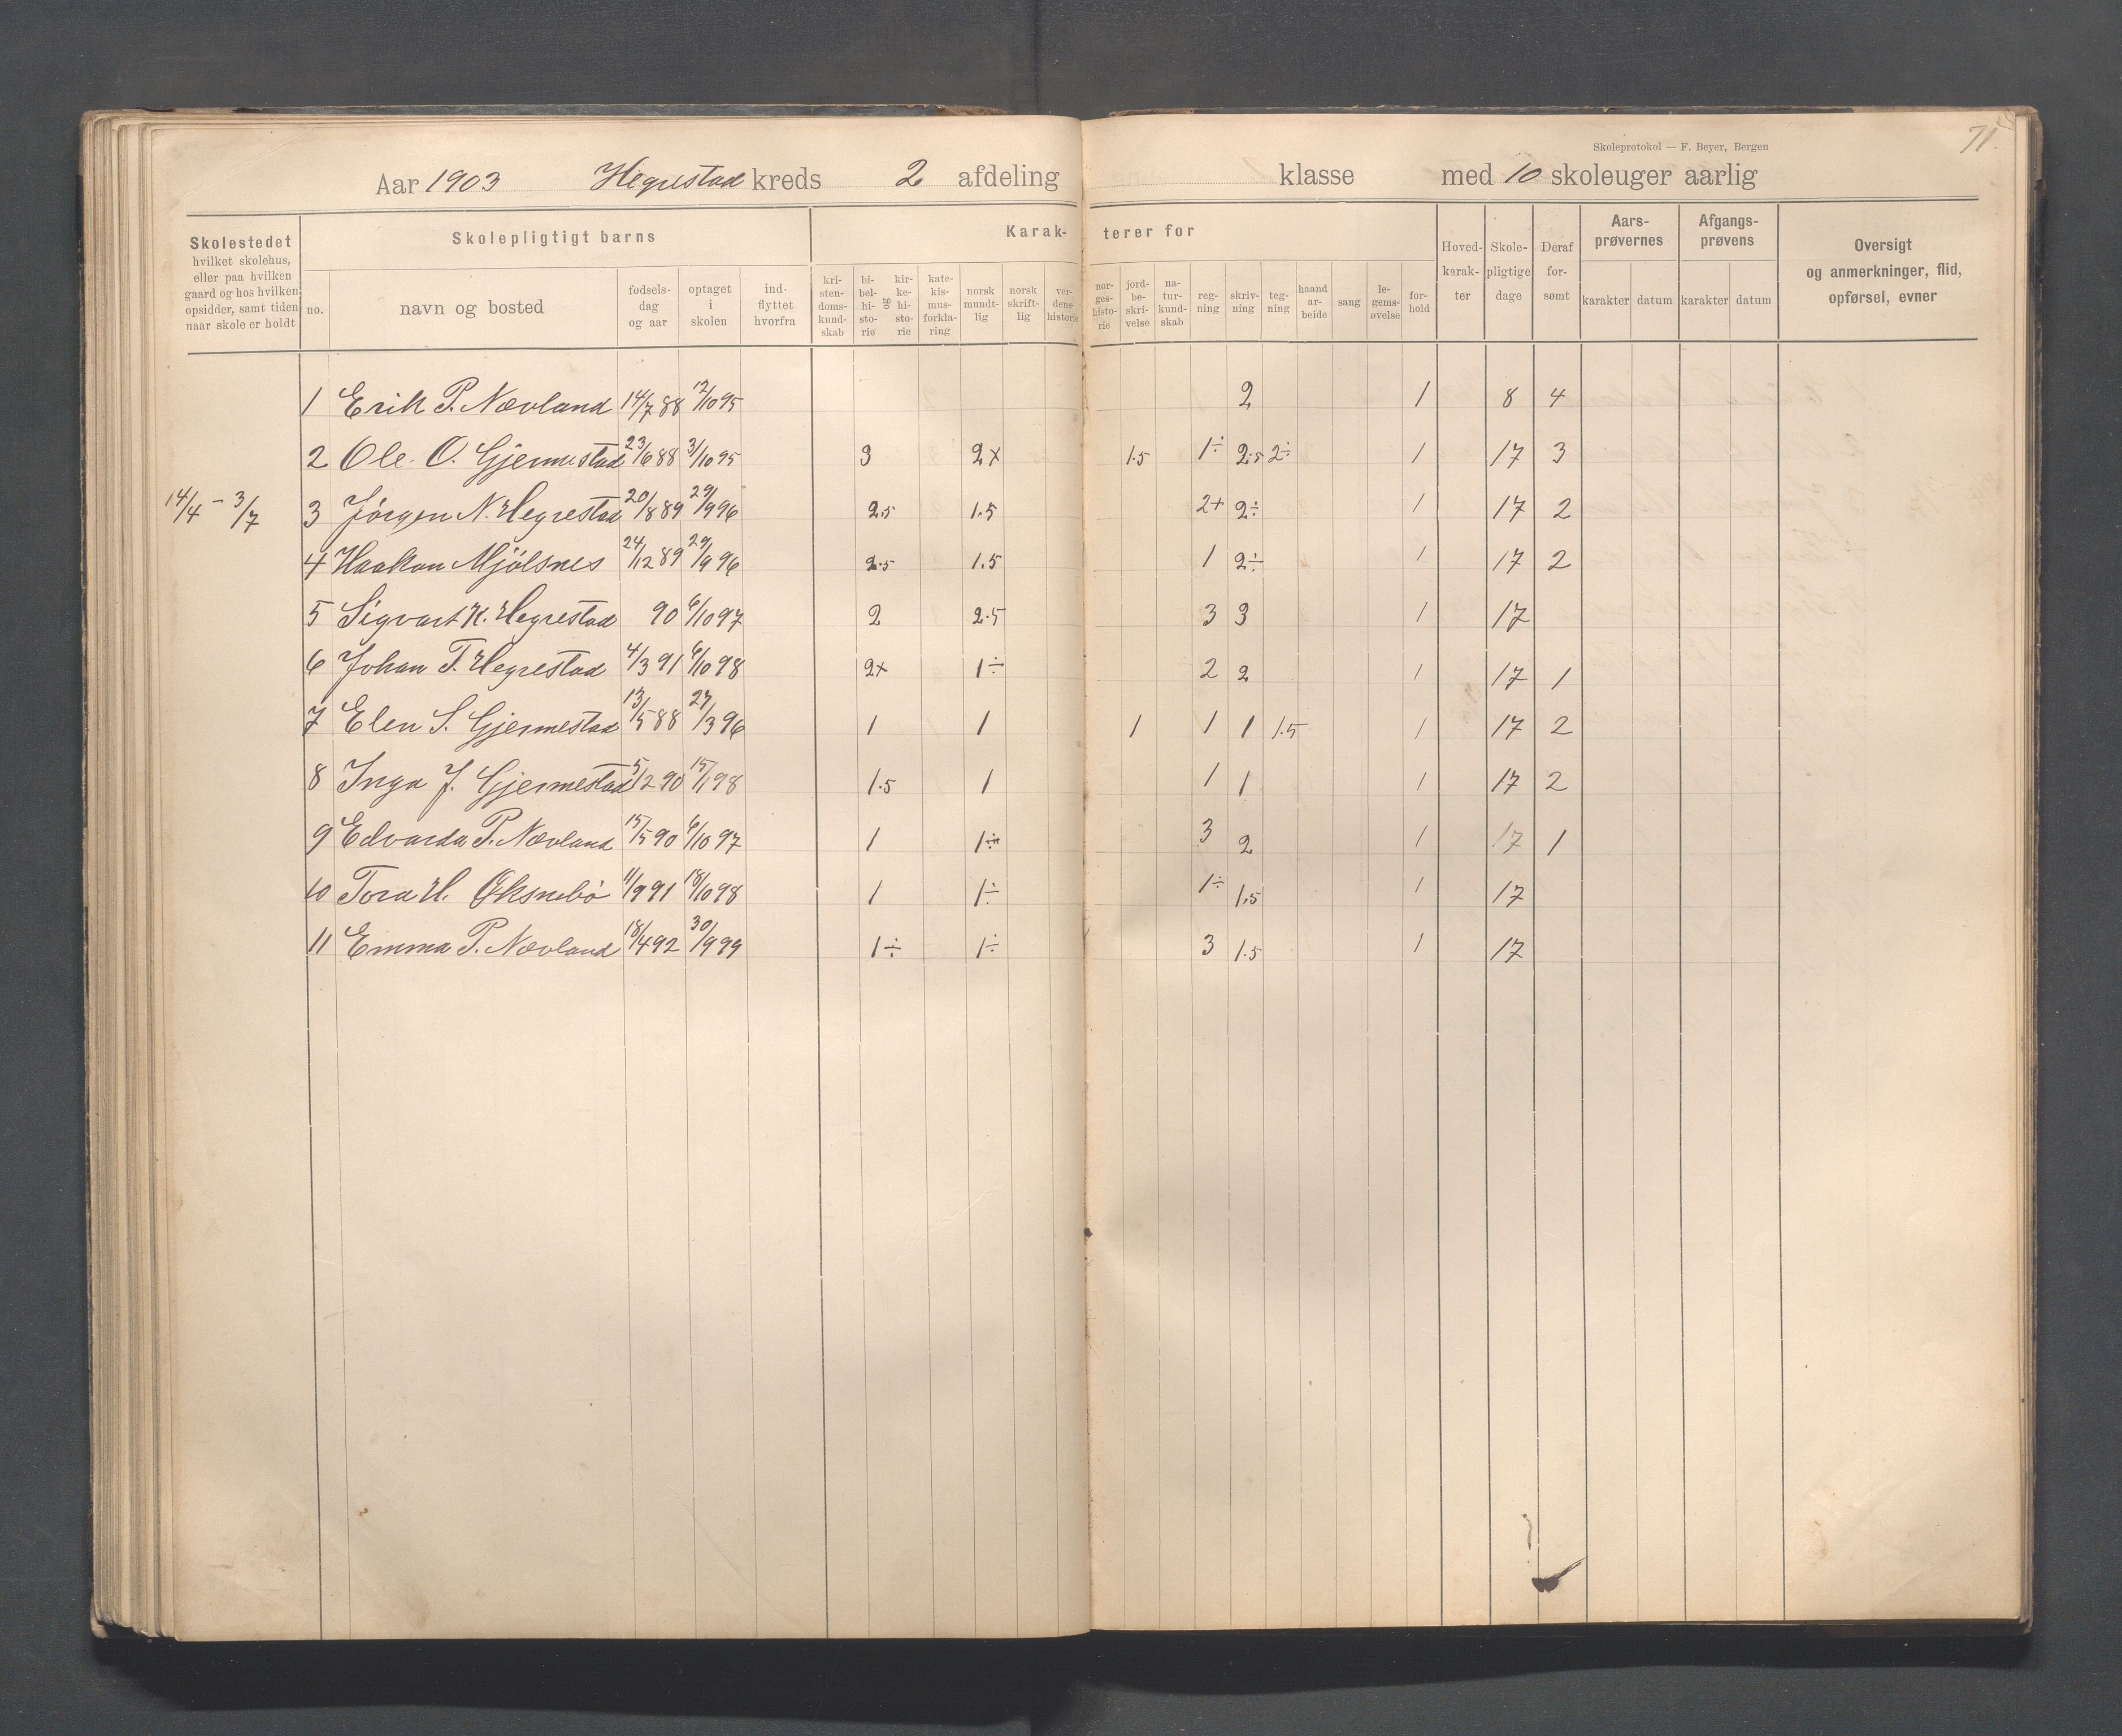 71.
Skoleprotokol — F. Beyer, Bergen
Aar 1903 Hegrestad kreds 2 afdeling klasse med 10 skoleuger aarlig
Skolestedet hvilket skolehus, eller paa hvilken gaard og hos hvilken opsidder, samt tiden naar skole er holdt
Skolepligtigt barns
Karak- terer for
no. navn og bosted fødsels-dag og aar optaget i skolen ind-flyttet hvorfra
kri-sten-doms-kund-skab bi-bel-hi-sto-rie og kir-ke-hi-sto-rie kate-kis-mus-forkla-ring norsk mundt-lig norsk skrift-lig ver-dens-historie nor-ges-histo-rie jord-be-skri-velse na-tur-kund-skab reg-ning skriv-ning teg-ning haand ar-beide sang le-gems-øvelse for-hold
Hoved-karak-ter Skole-pligtige dage Deraf for-sømt
Aars-prøvernes karakter datum
Afgangs-prøvens karakter datum
Oversigt og anmerkninger, flid, opførsel, evner
1 Erik P. Nævland 14/7 88 12/10 95 2 1 8 4
2 Ole O. Gjermestad 23/6 88 3/10 95 3 2+ 1.5 1÷ 2.5 2÷ 1 17 3
14/4 - 3/7
3 Jørgen N. Hegrestad 20/8 89 29/9 96 2.5 1.5 2+ 2÷ 1 17 2
4 Haakon Mjølsnes 24/12 89 29/9 96 2.5 1.5 1 2÷ 1 17 2
5 Sigvart K. Hegrestad 90 6/10 97 2 2.5 3 3 1 17
6 Johan T. Hegrestad 4/3 91 6/10 98 2+ 1÷ 2 2 1 17 1
7 Elen S. Gjermestad 13/5 88 27/3 96 1 1 1 1 1 1.5 1 17 2
8 Inga J. Gjermestad 5/2 90 15/1 98 1.5 1 1 1 1 17 2
9 Edvarda P. Nævland 15/5 90 6/10 97 1 1÷ 3 2 1 17 1
10 Tora H. Øksnebø 11/9 91 18/10 98 1 1÷ 1÷ 1.5 1 17
11 Emma P. Nævland 18/4 92 30/9 99 1÷ 1÷ 3 1.5 1 17